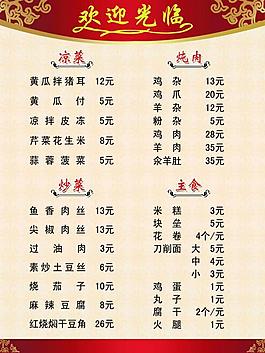 欢迎光临
凉菜
黄瓜拌猪耳 12元
黄瓜付 5元
凉拌皮冻 5元
芹菜花生米 8元
蒜蓉菠菜 5元
炖肉
鸡杂 13元
鸡爪 20元
羊杂 13元
粉杂 5元
鸡肉 28元
羊肉 35元
汆羊肚 35元
炒菜
鱼香肉丝 13元
尖椒肉丝 13元
过油肉 13元
素炒土豆丝 6元
烧茄子 10元
麻辣豆腐 8元
红烧焖干豆角 26元
主食
米糕 3元
块垒 5元
花卷 4个/元
刀削面 大 5元
中 4元
小 3元
鸡蛋 1元
丸子 1元
腐干 2个/元
火腿 1元